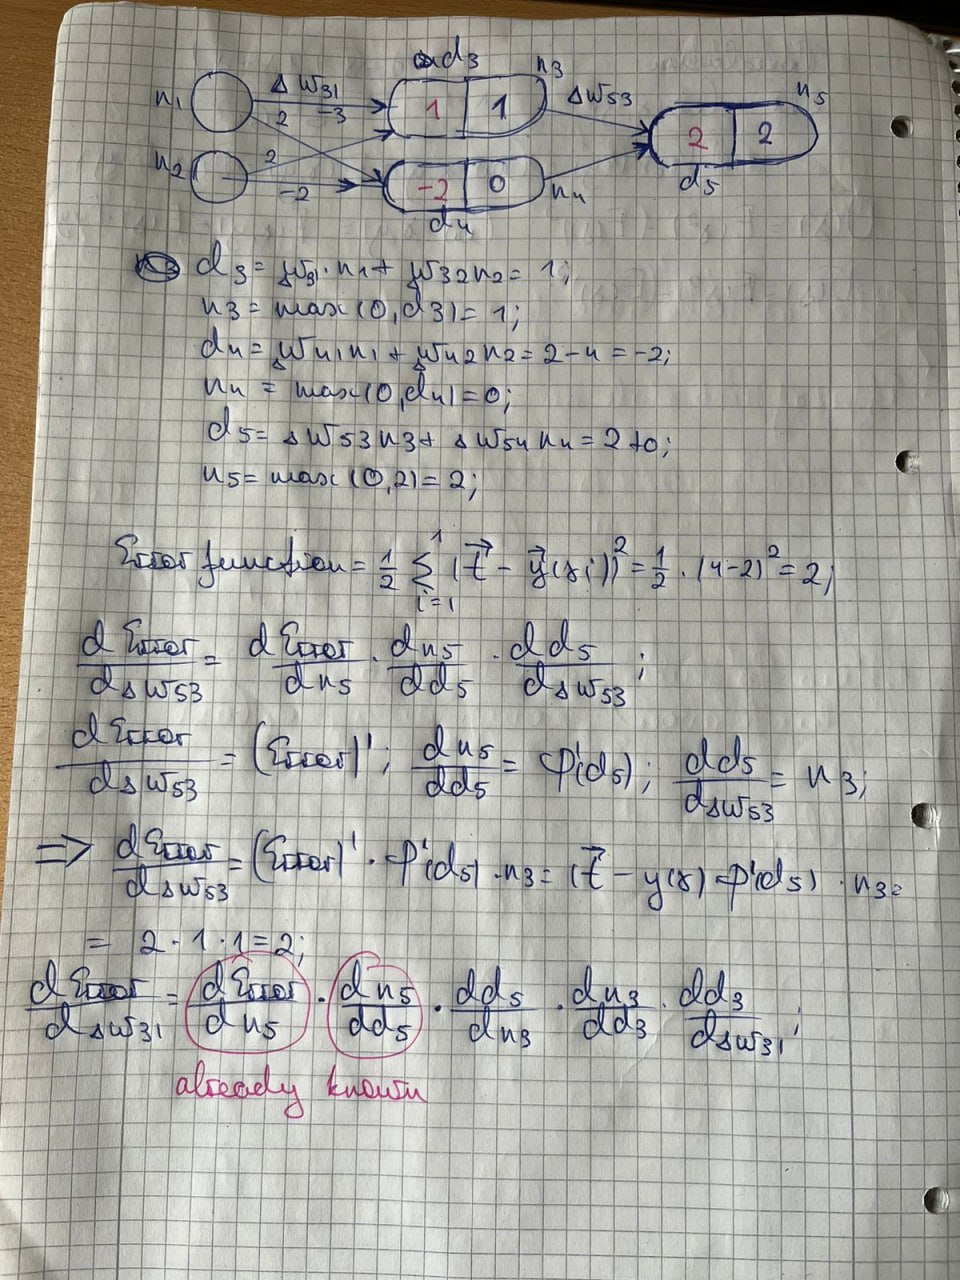 d₃ n₃
n₁ Δw₃₁ 1 1 Δw₅₃ n₅
2 -3 2 2
n₂ 2 -2 0 n₄ d₅
-2 d₄
d₃ = w₃₁·n₁ + w₃₂n₂ = 1;
n₃ = max(0,d₃) = 1;
d₄ = Δw₄₁n₁ + Δw₄₂n₂ = 2-4 = -2;
n₄ = max(0,d₄) = 0;
d₅ = Δw₅₃n₃ + Δw₅₄n₄ = 2+0;
n₅ = max(0,2) = 2;
Error function = 1/2 Σ_{i=1}^{1} (t⃗ - y⃗(xᵢ))² = 1/2 · (4-2)² = 2;
dError/dΔw₅₃ = dError/dn₅ · dn₅/dd₅ · dd₅/dΔw₅₃;
dError/dΔw₅₃ = (Error)'; dn₅/dd₅ = φ'(d₅); dd₅/dΔw₅₃ = n₃;
⇒ dError/dΔw₅₃ = (Error)' · φ'(d₅) · n₃ = (t⃗ - y(x)) φ'(d₅) · n₃ =
= 2·1·1 = 2;
dError/dΔw₃₁ = dError/dn₅ · dn₅/dd₅ · dd₅/dn₃ · dn₃/dd₃ · dd₃/dΔw₃₁;
already known